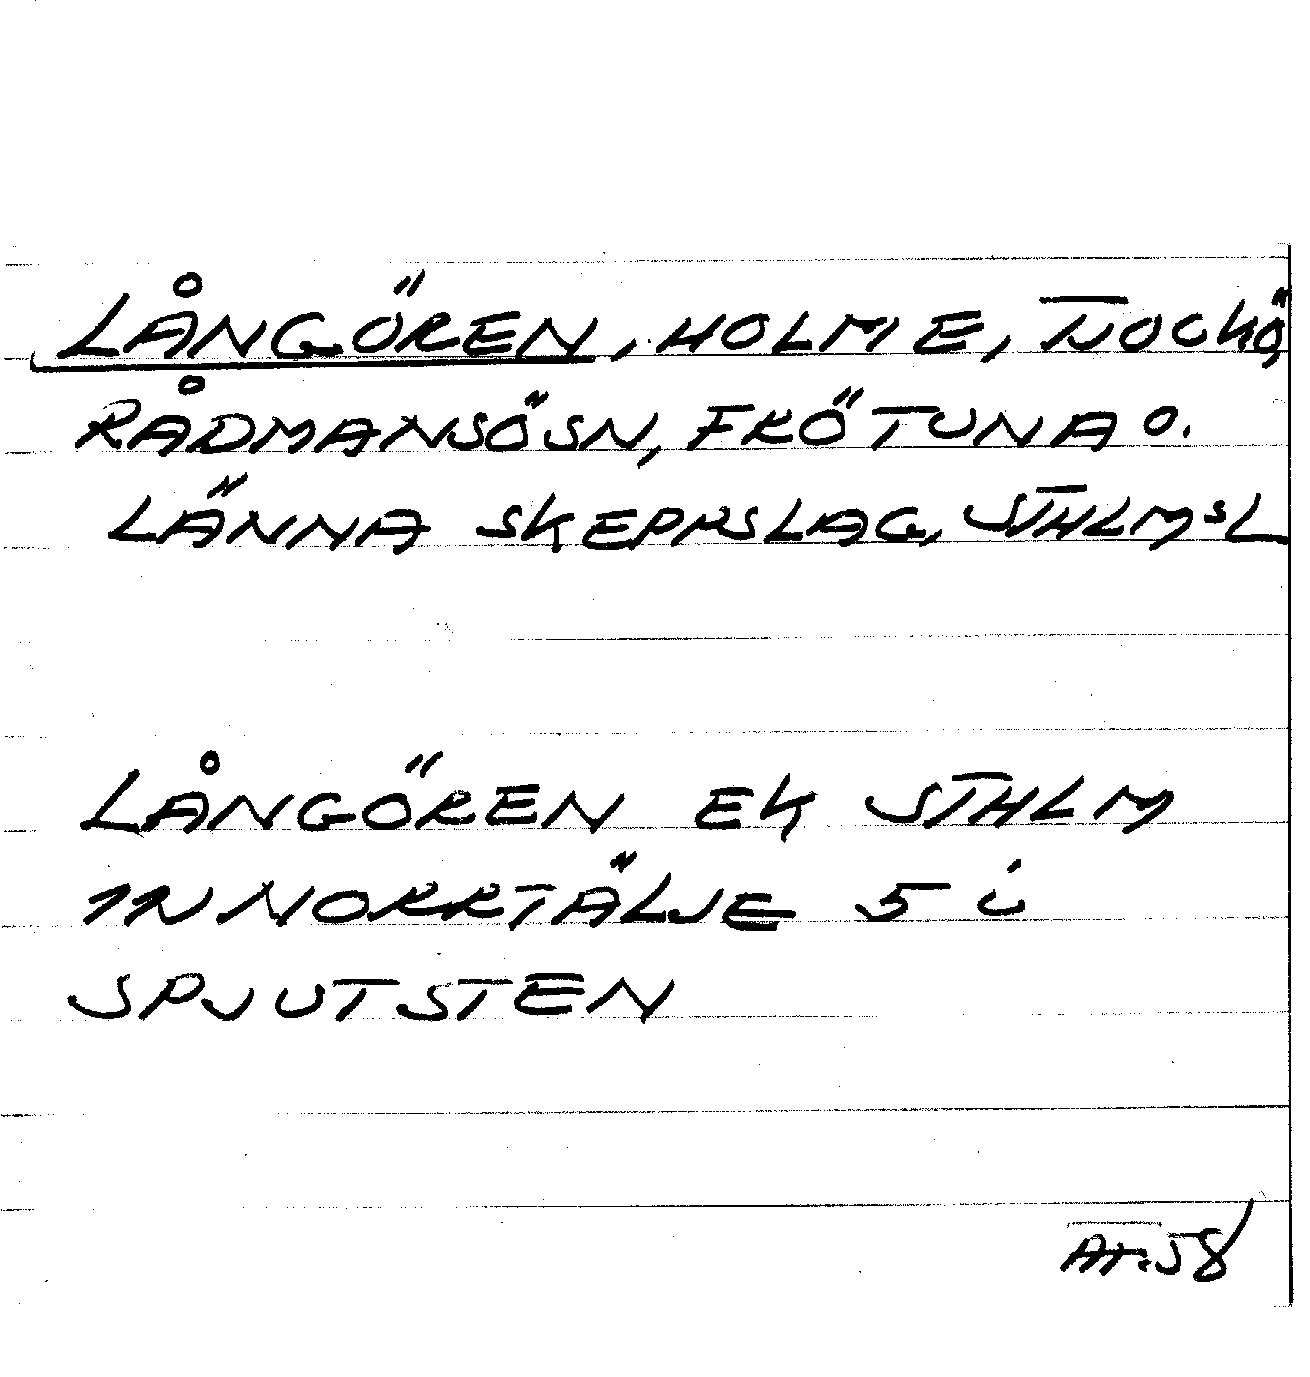 LÅNGÖREN, HOLME, TJOCKÖ,
RÅDMANSÖSN, FRÖTUNA O.
LÄNNA SKEPPSLAG, STHLMSL
LÅNGÖREN EK STHLM
INNORRTÄLJE 5 i
SPJUTSTEN
AT.58